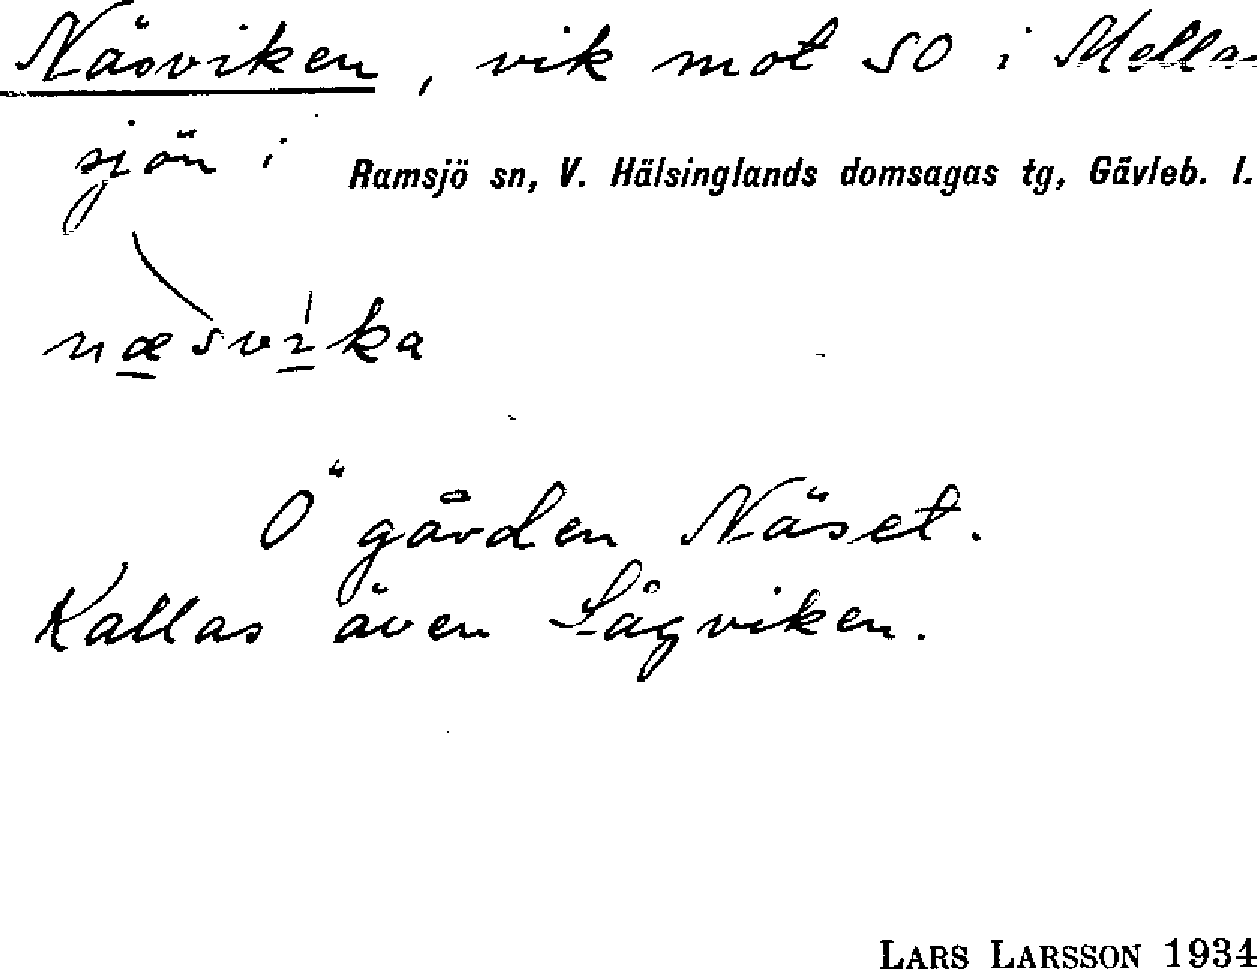 Näsviken, vik mot SO i Mella-
sjön i Ramsjö sn, V. Hälsinglands domsagas tg, Gävleb. l.
næsvika
Ö gården Näset.
Kallas även Lågviken.
LARS LARSSON 1934